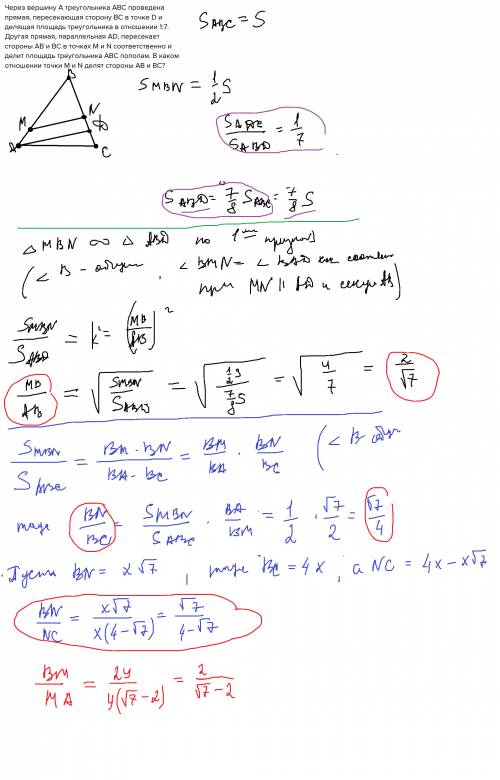 Через вершину A треугольника ABC проведена
прямая, пересекающая сторону BC в точке D и
делящая площадь треугольника в отношении 1:7.
Другая прямая, параллельная AD, пересекает
стороны AB и BC в точках M и N соответственно и
делит площадь треугольника ABC пополам. В каком
отношении точки M и N делят стороны AB и BC?
S_ABC = S
S_MBN = 1/2 S
S_ADC / S_ABD = 1/7
B
M
N
D
A
C
S_ABD = 7/8 S_ABC = 7/8 S
△ MBN ∞ △ ABD по 1
(∠ B - общий, ∠ BMN = ∠ BAD как соответ
при MN || AD и секущ AB)
S_MBN / S_ABD = k² = (MB/AB)²
MB/AB = √(S_MBN / S_ABD) = √(1/2 S / 7/8 S) = √(4/7) = 2/√7
S_MBN / S_ABC = BM · BN / BA · BC = BM/BA · BN/BC (∠ B общ
тогда BN/BC = S_MBN / S_ABC · BA/BM = 1/2 · √7/2 = √7/4
Пусть BN = x√7, тогда BC = 4x, а NC = 4x - x√7
BN/NC = x√7 / x(4-√7) = √7 / 4-√7
BM/MA = 2y / y(√7-2) = 2 / √7-2